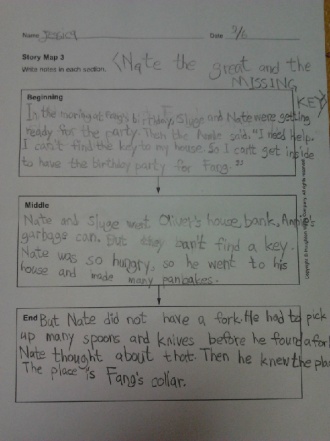 Name Date 3/6
Story Map 3
Write notes in each section.
<Nate the great and the
MISSING
KEY
Beginning
In the morning at Fang's birthday, Sluge and Nate were getting
ready for the party. Then the Annie said. "I need help.
I can't find the key to my house. So I can't get inside
to have the birthday party for Fang."
Middle
Nate and Sluge went Oliver's house, bank, Annie's
garbage can. But they can't find a key.
Nate was so hungry, so he went to his
house and made many pancakes.
End But Nate did not have a fork. He had to pick
up many spoons and knives before he found a for
Nate thought about that. Then he knew the pla
The place is Fang's collar.